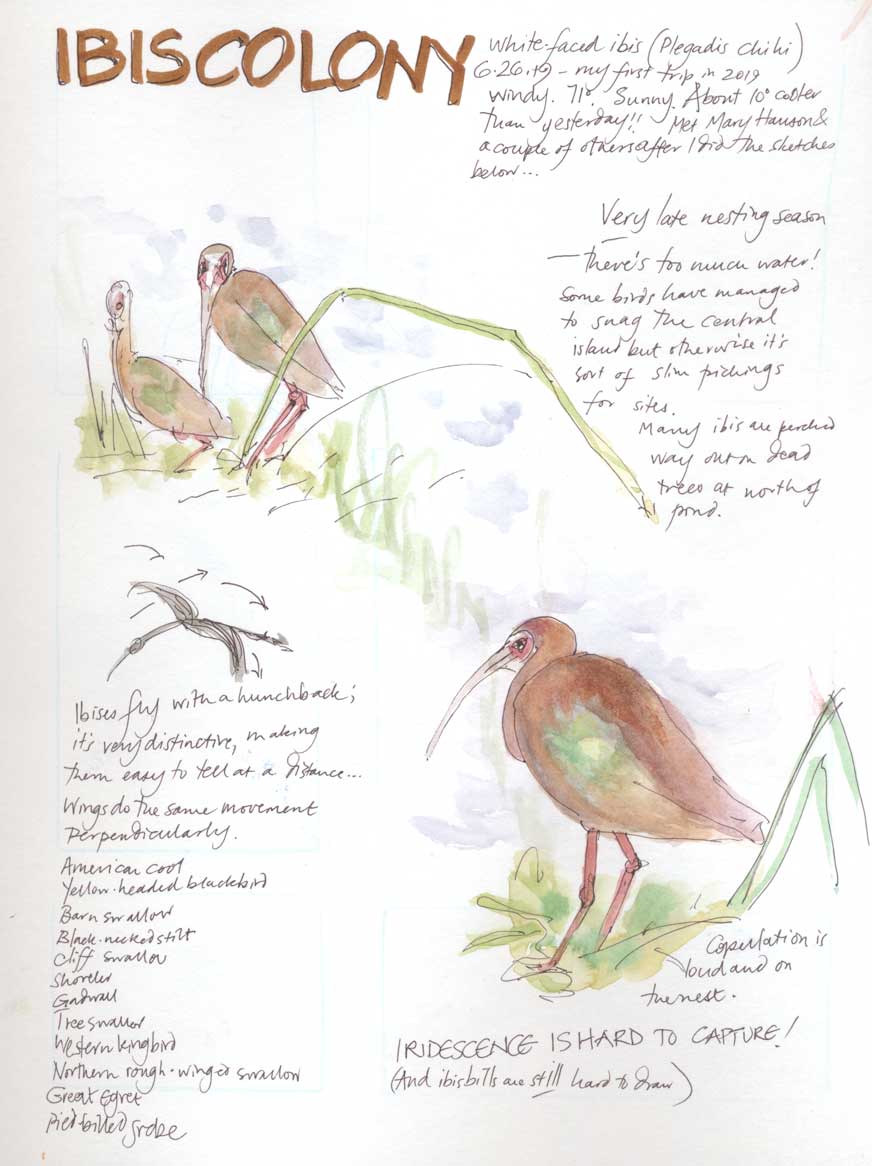 IBIS COLONY
White-faced ibis (Plegadis chihi)
6.26.19 - my first trip in 2019
Windy. 71°. Sunny. About 10° cooler
than yesterday!! Met Mary Hanson &
a couple of others after I did the sketches
below...
Very late nesting season
— there's too much water!
Some birds have managed
to snag the central
island but otherwise it's
sort of slim pickings
for sites.
Many ibis are perched
way out on dead
trees at north of
pond.
Ibises fly with a hunchback;
it's very distinctive, making
them easy to tell at a distance...
Wings do the same movement
perpendicularly.
American coot
Yellow-headed blackbird
Barn swallow
Black-necked stilt
Cliff swallow
Shoveler
Gadwall
Tree swallow
Western kingbird
Northern rough-winged swallow
Great Egret
Pied billed grebe
Copulation is
loud and on
the nest.
IRIDESCENCE IS HARD TO CAPTURE!
(And ibis bills are still hard to draw)